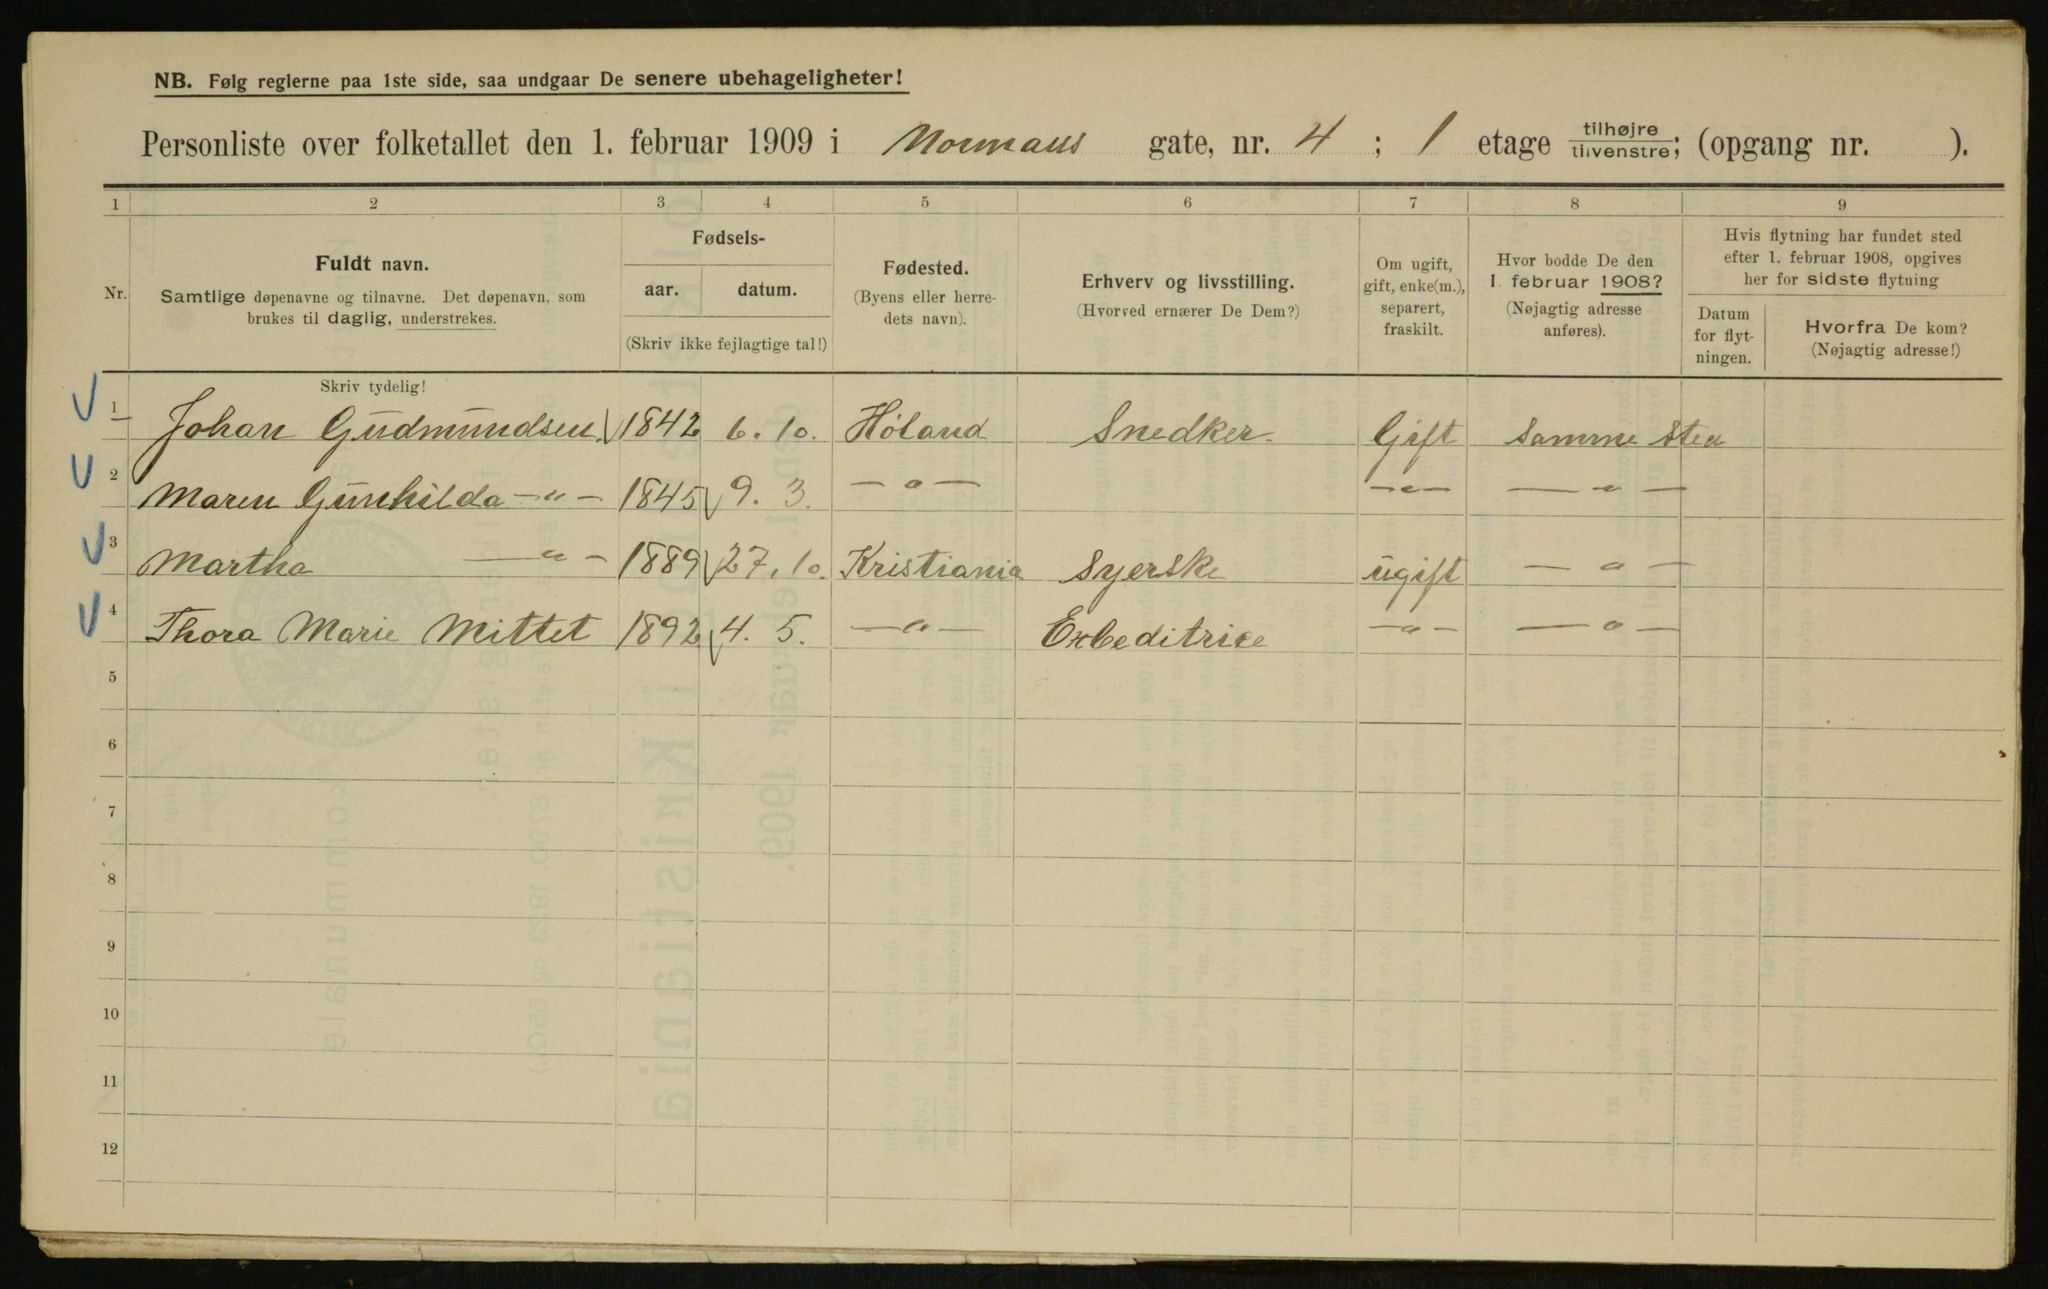 NB. Følg reglerne paa 1ste side, saa undgaar De senere ubehageligheter!
Personliste over folketallet den 1. februar 1909 i Normans gate, nr. 4 ; 1 etage tilhøjre / tilvenstre; (opgang nr. ).
1 2 3 4 5 6 7 8 9
Nr.
Fuldt navn.
Samtlige døpenavne og tilnavne. Det døpenavn, som
brukes til daglig, understrekes.
Skriv tydelig!
Fødsels-
aar. datum.
(Skriv ikke fejlagtige tal!)
Fødested.
(Byens eller herre-
dets navn).
Erhverv og livsstilling.
(Hvorved ernærer De Dem?)
Om ugift,
gift, enke(m.),
separert,
fraskilt.
Hvor bodde De den
1. februar 1908?
(Nøjagtig adresse
anføres).
Hvis flytning har fundet sted
efter 1. februar 1908, opgives
her for sidste flytning
Datum
for flyt-
ningen.
Hvorfra De kom?
(Nøjagtig adresse!)
1 Johan Gudmundsen 1842 6. 10. Høland Snedker. Gift Samme sted
2 Maren Gunhilda —„— 1845 9. 3. —„— —„— —„—
3 Martha —„— 1889 27. 10. Kristiania Syerske ugift —„—
4 Thora Marie Mittet 1892 4. 5. —„— Exbeditrice —„— —„—
5
6
7
8
9
10
11
12